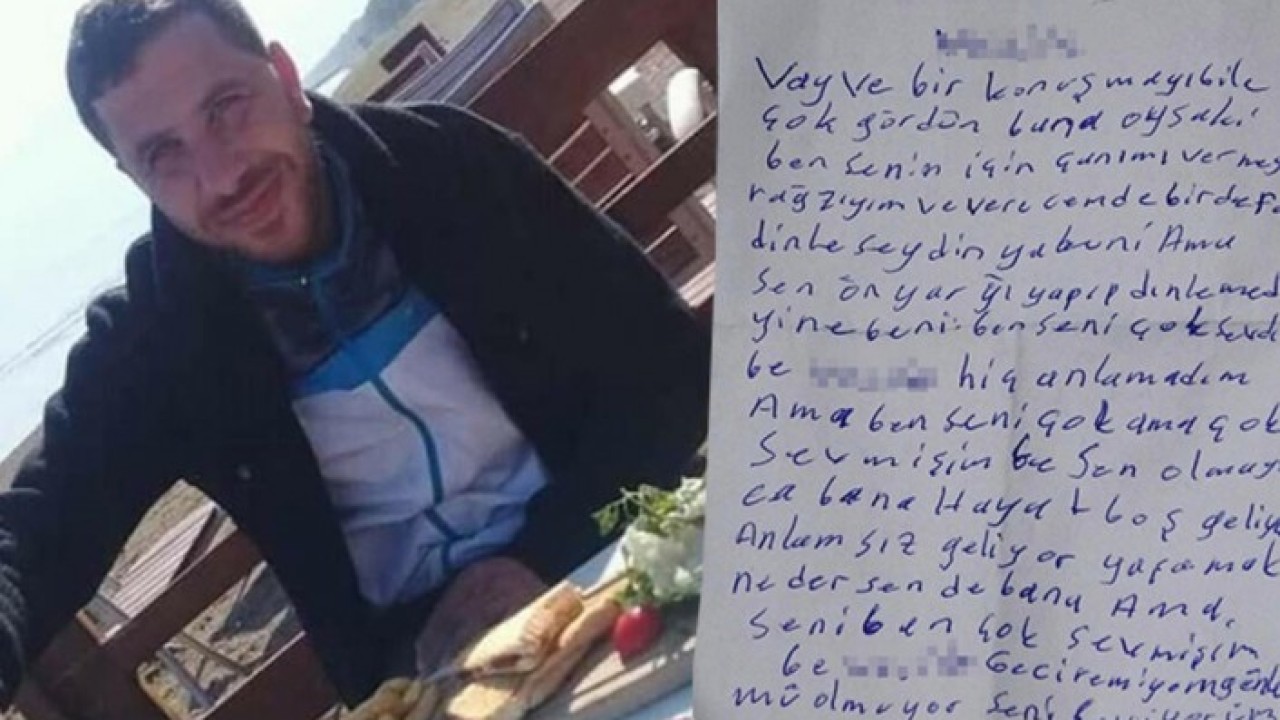 Vay Ve bir konuşmayıbile
çok gördün bana oysaki
ben senin için çanımı vermeş
rağzıyım ve verecemde birdefa
dinleseydin ya beni Ama
sen ön yarğı yapıp dinlemed
yine beni ben seni çok sevd
be hiç anlamadım
Ama ben seni çok ama çok
Sevmişim be Sen olmay
ca bana Hayat boş geliy
Anlamsız geliyor yaşamak
ne dersen de bana Ama
seni ben çok sevmişim
be Geciremiyom
mü olmuyor Seni